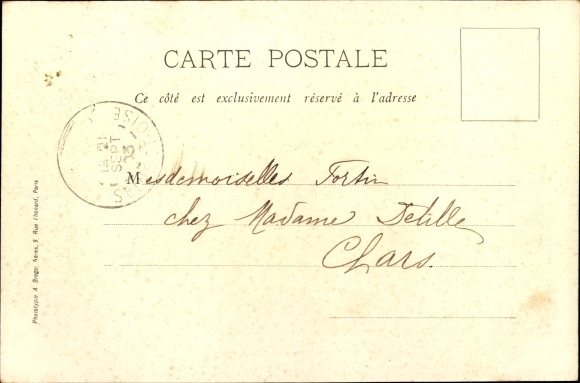 CARTE POSTALE
Ce côté est exclusivement réservé à l'adresse
OISE
21
SEPT
03
Mesdemoiselles Fortin
chez Madame Delille
Chars.
Phototypie A. Breger frères, 9, Rue Thénard, Paris